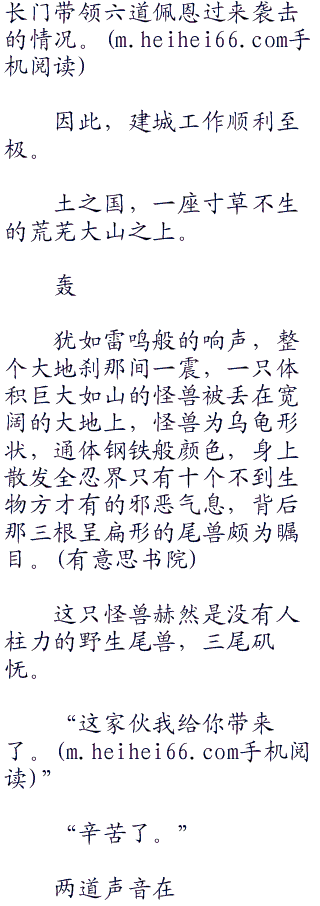 长门带领六道佩恩过来袭击
的情况。(m.heihei66.com手
机阅读)
因此，建城工作顺利至
极。
土之国，一座寸草不生
的荒芜大山之上。
轰
犹如雷鸣般的响声，整
个大地刹那间一震，一只体
积巨大如山的怪兽被丢在宽
阔的大地上，怪兽为乌龟形
状，通体钢铁般颜色，身上
散发全忍界只有十个不到生
物方才有的邪恶气息，背后
那三根呈扁形的尾兽颇为瞩
目。(有意思书院)
这只怪兽赫然是没有人
柱力的野生尾兽，三尾矶
怃。
“这家伙我给你带来
了。(m.heihei66.com手机阅
读)”
“辛苦了。”
两道声音在